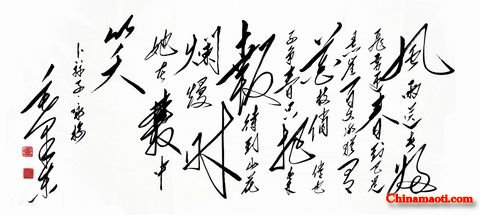 風雨送春归
飛雪迎春到已是
悬崖百丈冰犹有
花枝俏俏也
不争春只把春来
報待到山花
爛熳时
她在叢中
笑
卜算子 咏梅
毛泽东
Chinamaoti.com